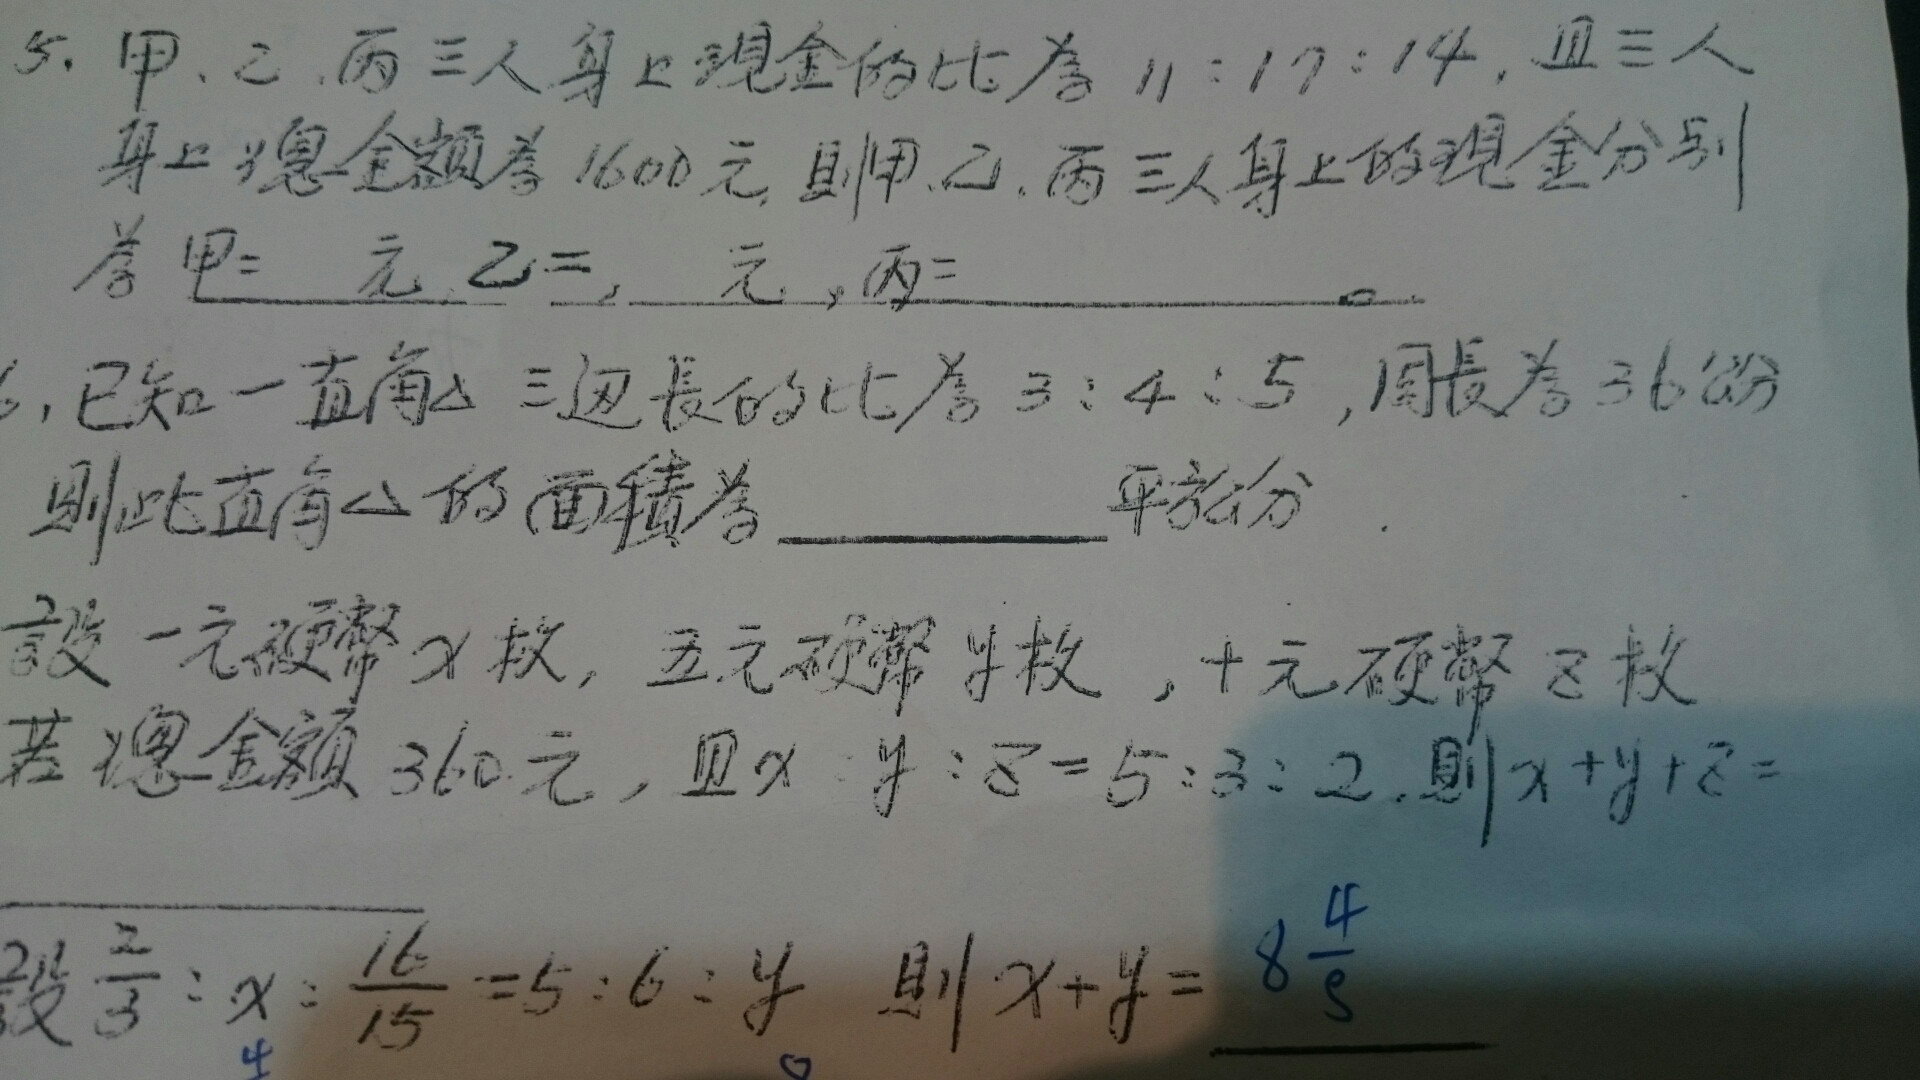 5. 甲、乙、丙三人身上現金的比為 11:17:14, 且三人
身上總金額為1600元, 則甲、乙、丙三人身上的現金分別
為 甲= 元, 乙=, 元, 丙= 。
6. 已知一直角△三边長的比為 3:4:5, 周長為36公分
則此直角△的面積為 平方公分.
設一元硬幣x枚, 五元硬幣y枚, 十元硬幣z枚
若總金額360元, 且x:y:z=5:3:2.則x+y+z=
設 2/3 : x : 16/15 = 5:6:y 則 x+y= 8 4/5
4